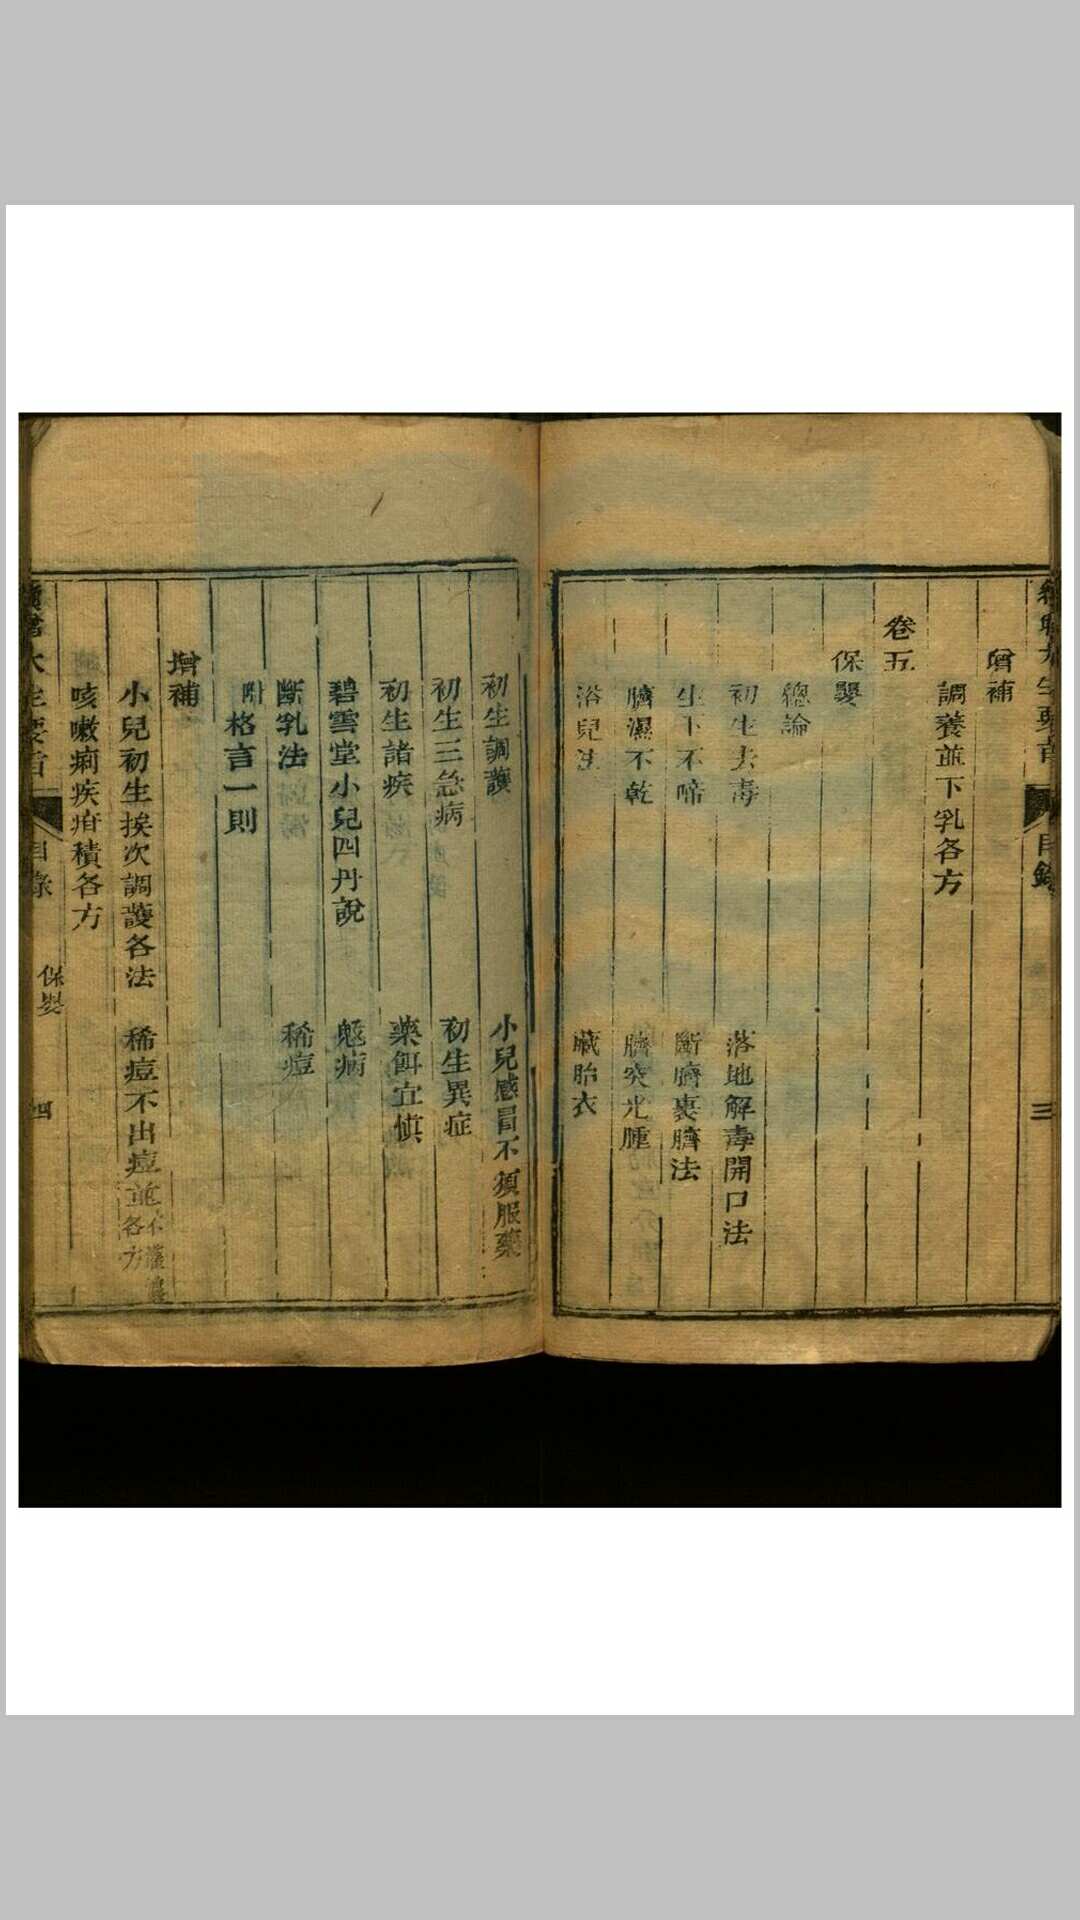 三
目錄
增補
調養並下乳各方
卷五
保嬰
總論
初生去毒 落地解毒開口法
生下不啼 斷臍裹臍法
臍濕不乾 臍突光腫
浴兒法 藏胎衣
初生調護 小兒感冒不須服藥
初生三急病 初生異症
初生諸疾 藥餌宜慎
碧雲堂小兒四丹說 魃病
斷乳法 稀痘
附格言一則
增補
小兒初生挨次調護各法 稀痘不出痘並各方
咳嗽痢疾疳積各方
大生要旨
目錄 保嬰 四